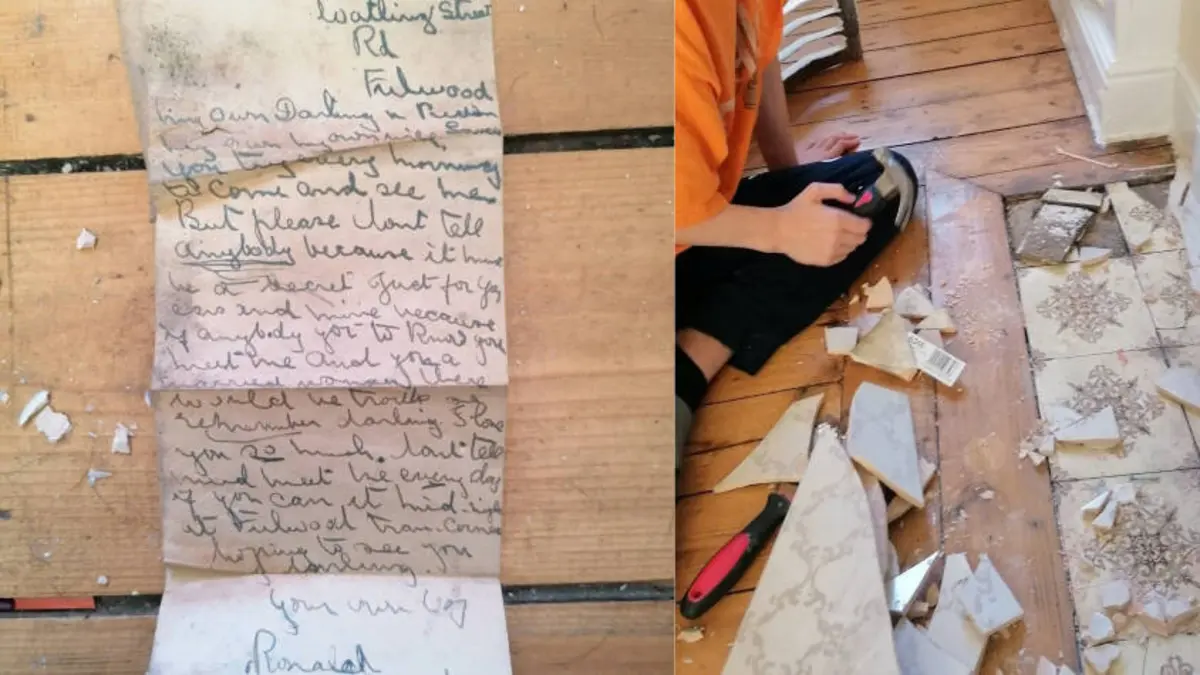 Watling Street
Rd
Fulwood
My own Darling in
my own
you try every morning
to come and see me.
But please dont tell
anybody because it must
be a secret Just for yo
ears and mine because
if anybody got to know you
meet me and you a
married woman there
would be trouble so
remember darling I love
you so much. dont tell
mind meet me every day
if you can at mid-nigh
at Fulwood tram. corner
hoping to see you
darling.
Your own boy
Ronald